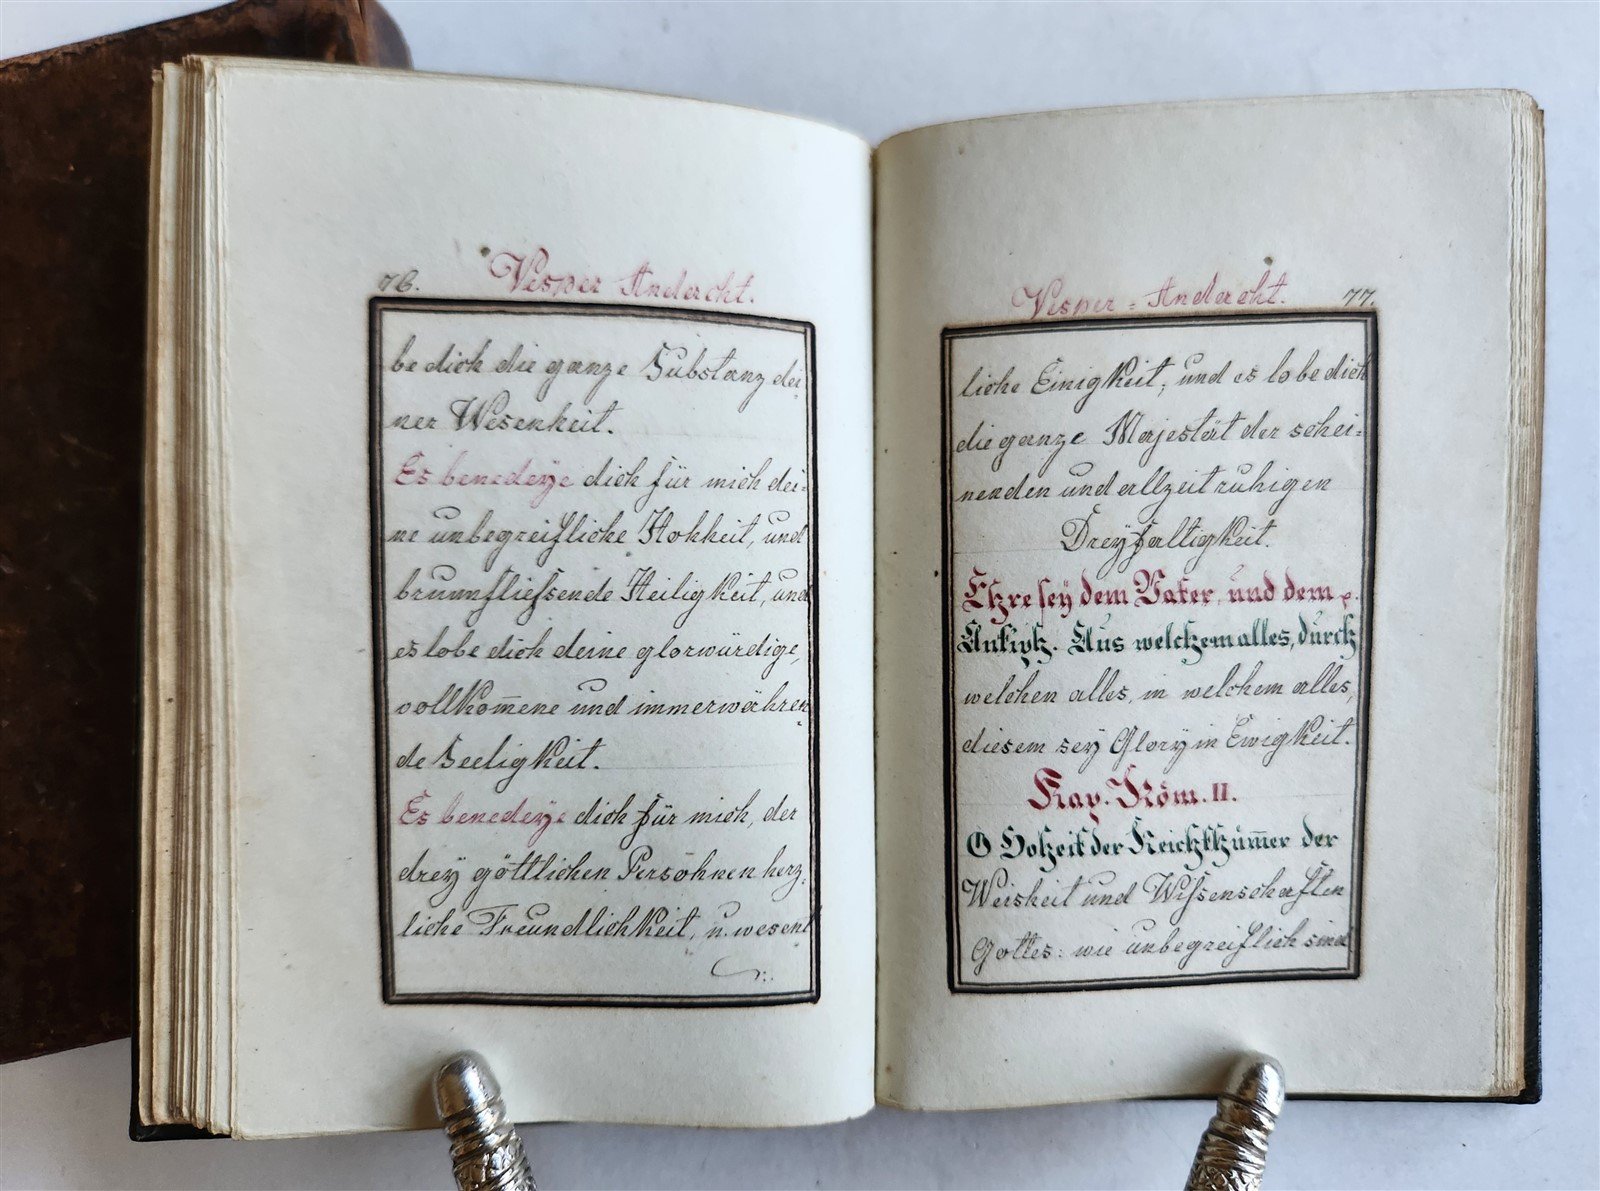 76.
Vesper Andacht.
be dich die ganze Substanz dei-
ner Wesenheit.
Es benedeye dich für mich dei=
ne unbegreifliche Hohheit, und
brunnfließende Heiligkeit, und
es lobe dich deine glorwürdige,
vollkom̅ene und immerwähren
de Seeligkeit.
Es benedeye dich für mich, der
drey göttlichen Persohnen herz=
liche Freundlichkeit, u. wesent
Vesper = Andacht.
77.
liche Einigkeit, und es lobe dich
die ganze Majestät der schei=
nenden und allzeit ruhigen
Dreyfaltigkeit.
Ehre sey dem Vater, und dem
Antiph. Aus welchem alles, durch
welchen alles, in welchem alles,
diesem sey Glory in Ewigkeit.
Kap. Röm. II.
O Hoheit der Reichthüm̅er der
Weisheit und Wißenschaften
Gottes: wie unbegreiflich sind